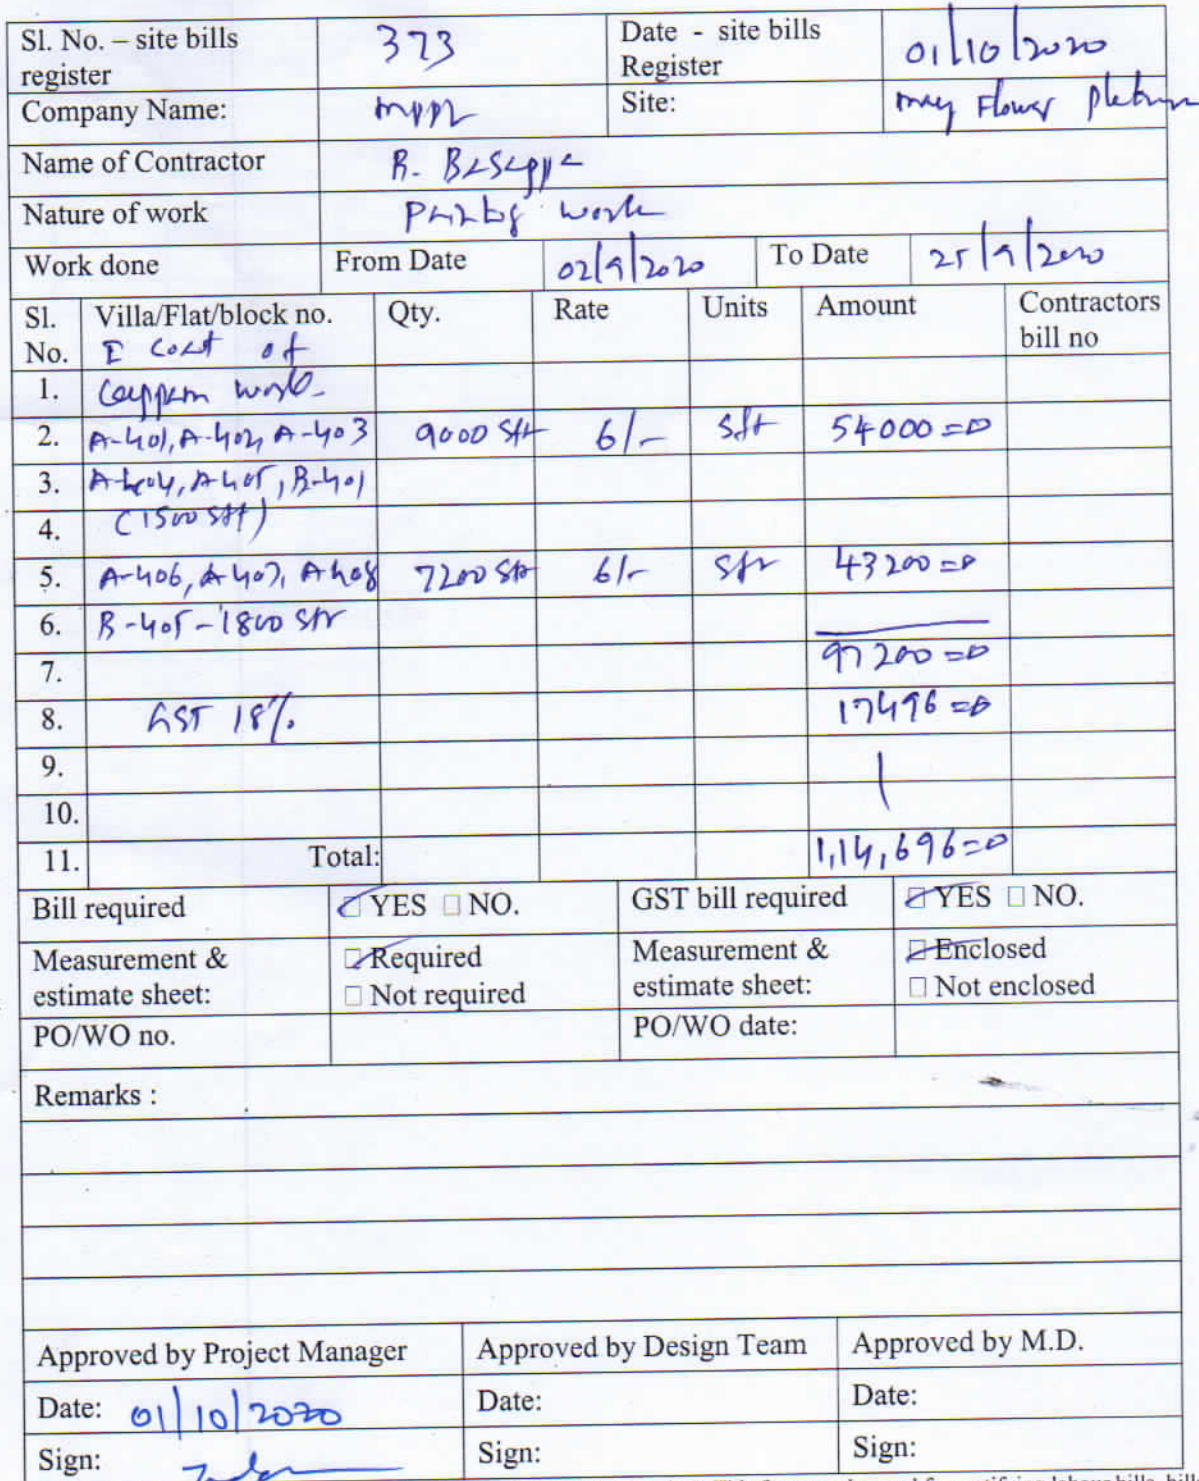 Sl. No. – site bills register 373 Date - site bills Register 01/10/2020
Company Name: mppl Site: may Flower platinum
Name of Contractor B. Basappa
Nature of work Painting work
Work done From Date 02/9/2020 To Date 25/9/2020
Sl. No. Villa/Flat/block no. Qty. Rate Units Amount Contractors bill no
I coat of
1. Lappam work
2. A-401, A-402, A-403 9000 Sft 6/- Sft 54000=0
3. A-404, A-405, B-401
4. (1500 Sft)
5. A-406, A-407, A-408 7200 Sft 6/- Sft 43200=0
6. B-405-1800 Sft
7. 97200=0
8. GST 18% 17496=0
9.
10.
11. Total: 1,14,696=0
Bill required YES NO. GST bill required YES NO.
Measurement & estimate sheet: Required Not required Measurement & estimate sheet: Enclosed Not enclosed
PO/WO no. PO/WO date:
Remarks :
Approved by Project Manager Approved by Design Team Approved by M.D.
Date: 01/10/2020 Date: Date:
Sign: Sign: Sign: